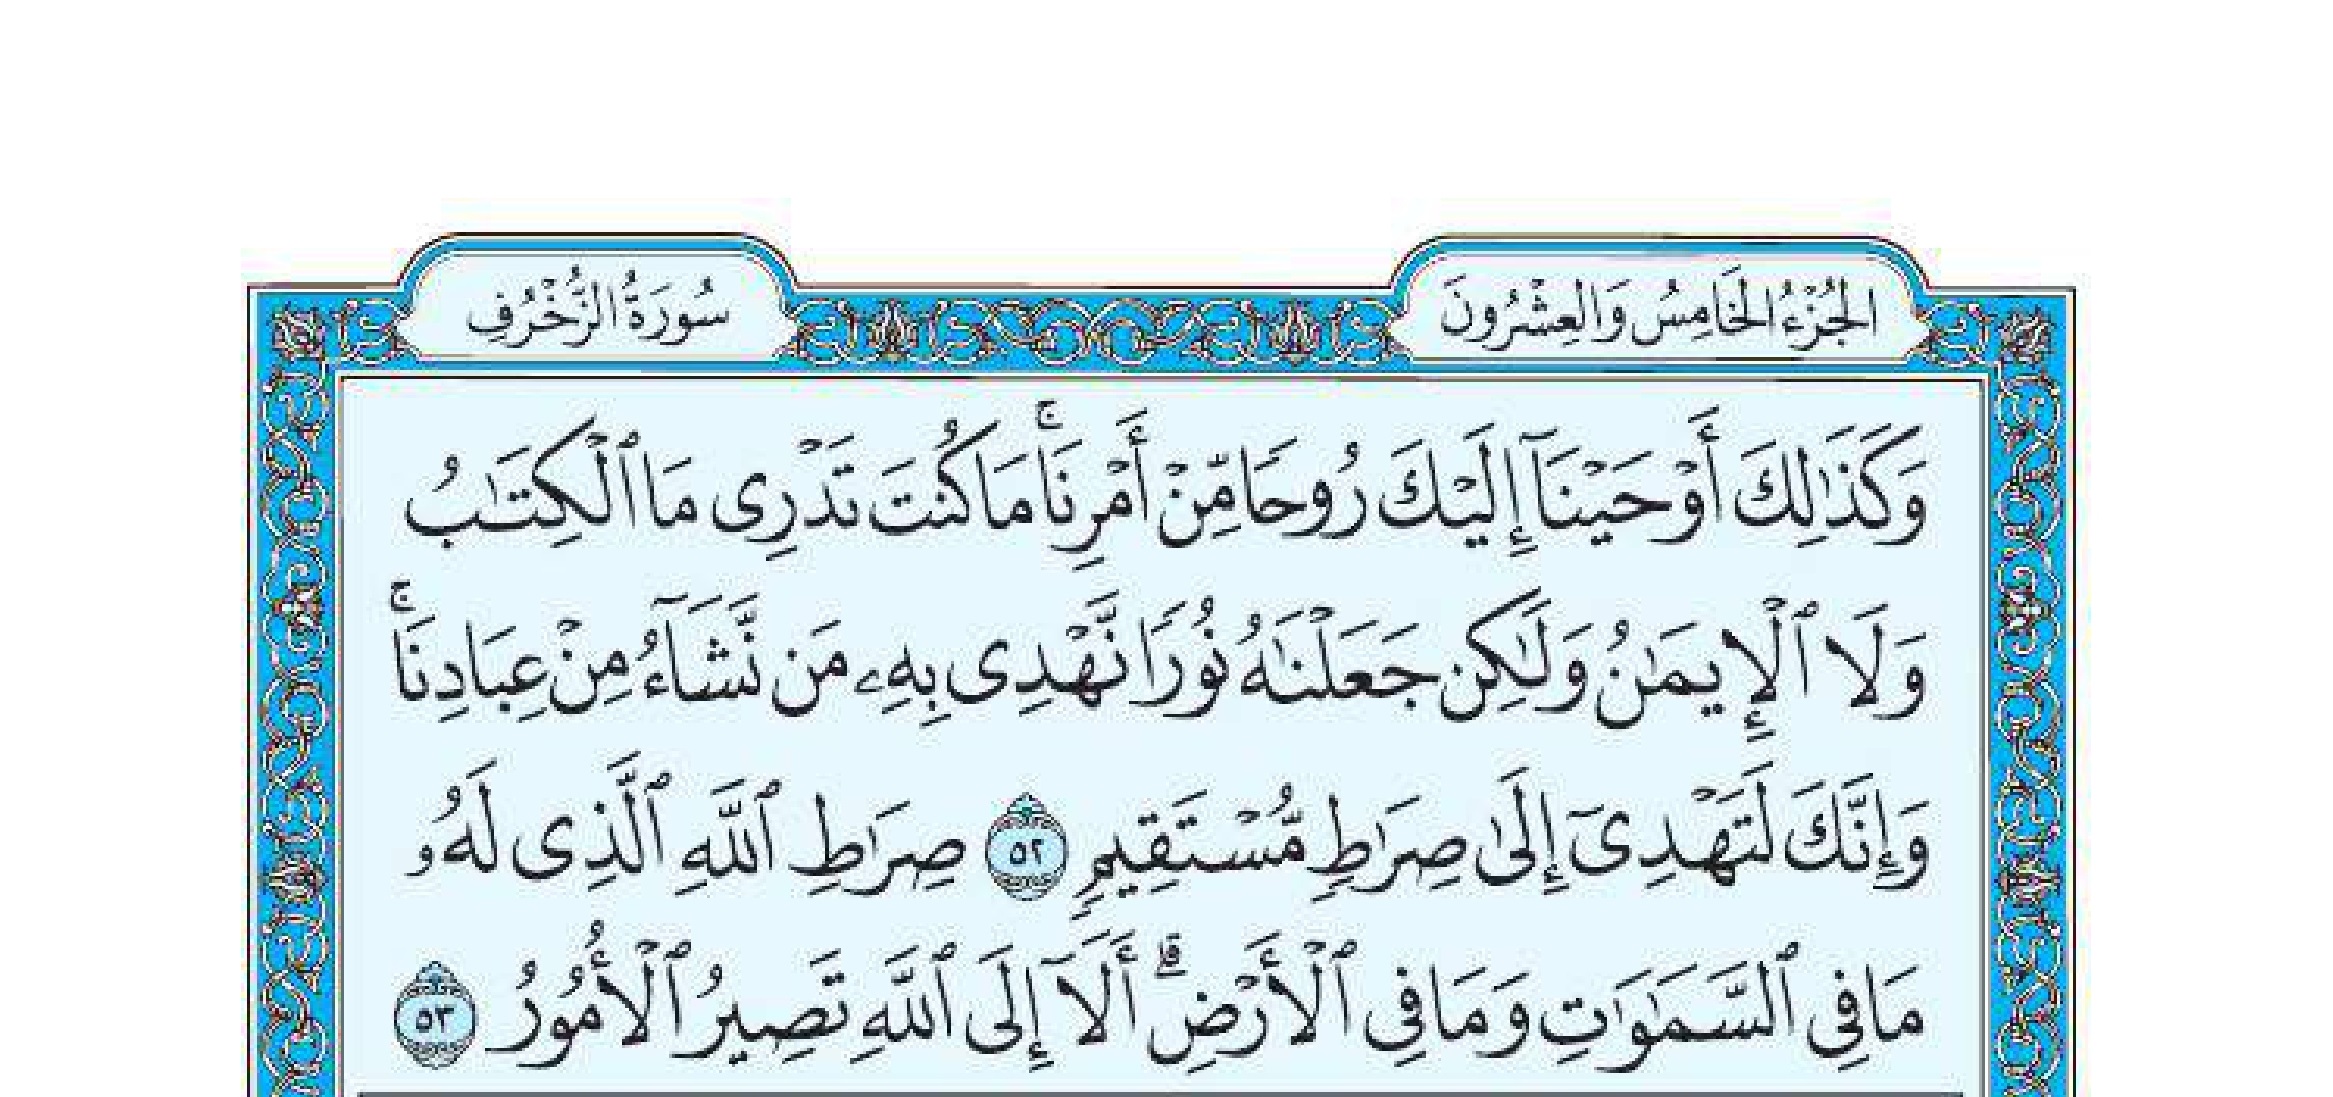 الجُزْءُ الخَامِسُ وَالعِشْرُونَ
سُورَةُ الزُّخْرُفِ
وَكَذَٰلِكَ أَوْحَيْنَآ إِلَيْكَ رُوحًا مِّنْ أَمْرِنَا ۚ مَا كُنتَ تَدْرِى مَا ٱلْكِتَـٰبُ
وَلَا ٱلْإِيمَـٰنُ وَلَـٰكِن جَعَلْنَـٰهُ نُورًا نَّهْدِى بِهِۦ مَن نَّشَآءُ مِنْ عِبَادِنَا ۚ
وَإِنَّكَ لَتَهْدِىٓ إِلَىٰ صِرَٰطٍ مُّسْتَقِيمٍ ٥٢ صِرَٰطِ ٱللَّهِ ٱلَّذِى لَهُۥ
مَا فِى ٱلسَّمَـٰوَٰتِ وَمَا فِى ٱلْأَرْضِ ۗ أَلَآ إِلَى ٱللَّهِ تَصِيرُ ٱلْأُمُورُ ٥٣